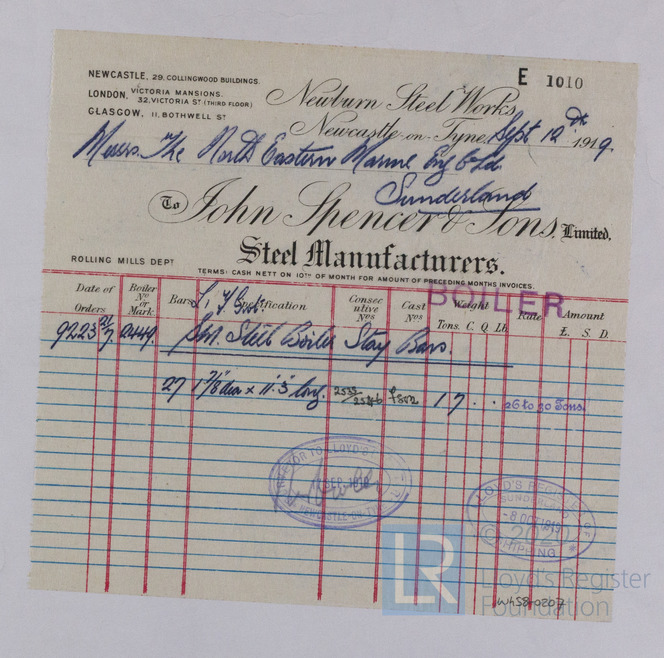 E 1010
NEWCASTLE, 29, COLLINGWOOD BUILDINGS.
LONDON, VICTORIA MANSIONS,
32, VICTORIA ST (THIRD FLOOR)
GLASGOW, 11, BOTHWELL ST
Newburn Steel Works,
Newcastle-on-Tyne, Sept 12th 1919.
Messrs. The North Eastern Marine Eng Co Ld
Sunderland
To John Spencer & Sons, Limited.
Steel Manufacturers.
ROLLING MILLS DEPT
TERMS: CASH NETT ON 10TH OF MONTH FOR AMOUNT OF PRECEDING MONTHS INVOICES.
BOILER
Date of Orders Boiler No or Mark. Bars Specification Consecutive Nos Cast Nos Weight Tons. C. Q. Lb. Rate Amount £. S. D.
9223 21/7 2449. Steel Boiler Stay Bars.
27 1 7/8" dia x 11'.3" long. 2535/2546 1 7 . . 26 to 30 Tons.
SURVEYOR TO LLOYD'S
SEP. 1919
NEWCASTLE-ON-TYNE
LLOYD'S REGISTER OF
SUNDERLAND
-8 OCT 1919
© 2020
SHIPPING
LR
Lloyd's Register
Foundation
W458-0207